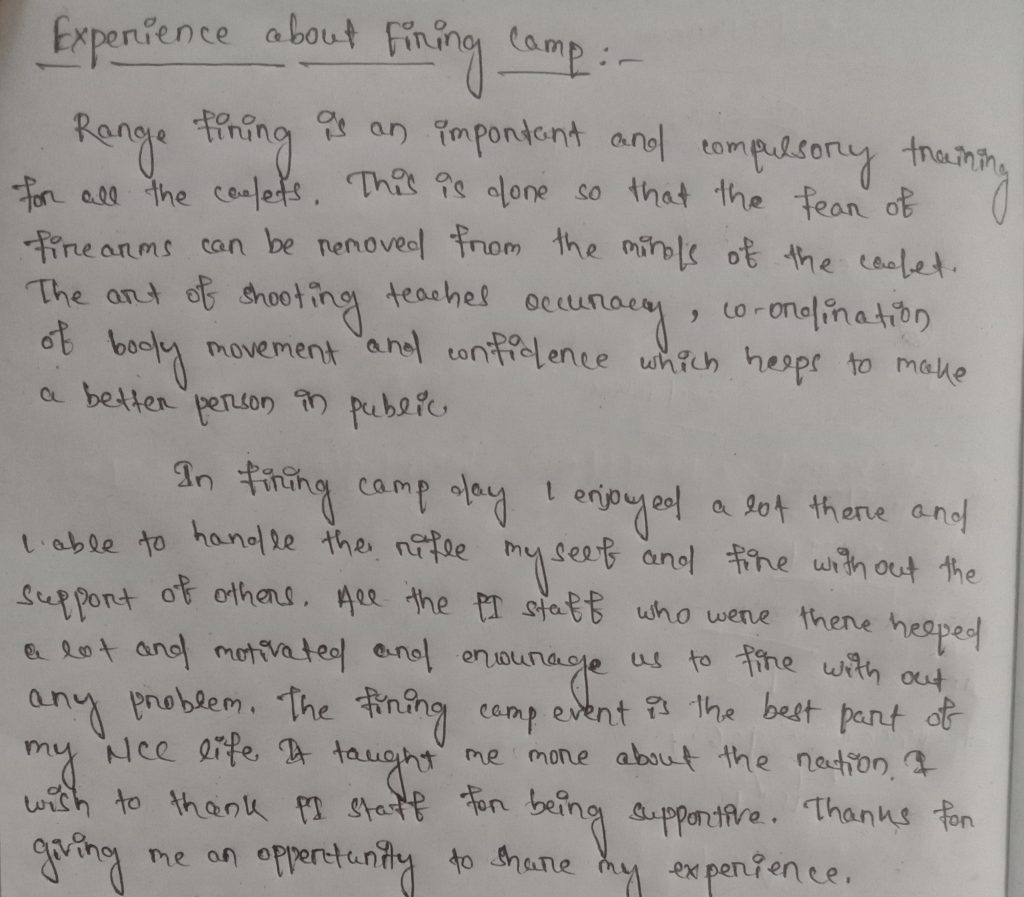 Experience about Firing Camp :-
Range firing is an important and compulsory training
for all the cadets. This is done so that the fear of
firearms can be removed from the minds of the cadet.
The art of shooting teaches accuracy, co-ordination
of body movement and confidence which helps to make
a better person in public.
In firing camp day I enjoyed a lot there and
I able to handle the rifle my self and fire with out the
support of others. All the PI staff who were there helped
a lot and motivated and encourage us to fire with out
any problem. The firing camp event is the best part of
my NCC life. It taught me more about the nation. I
wish to thank PI staff for being supportive. Thanks for
giving me an oppertunity to share my experience.